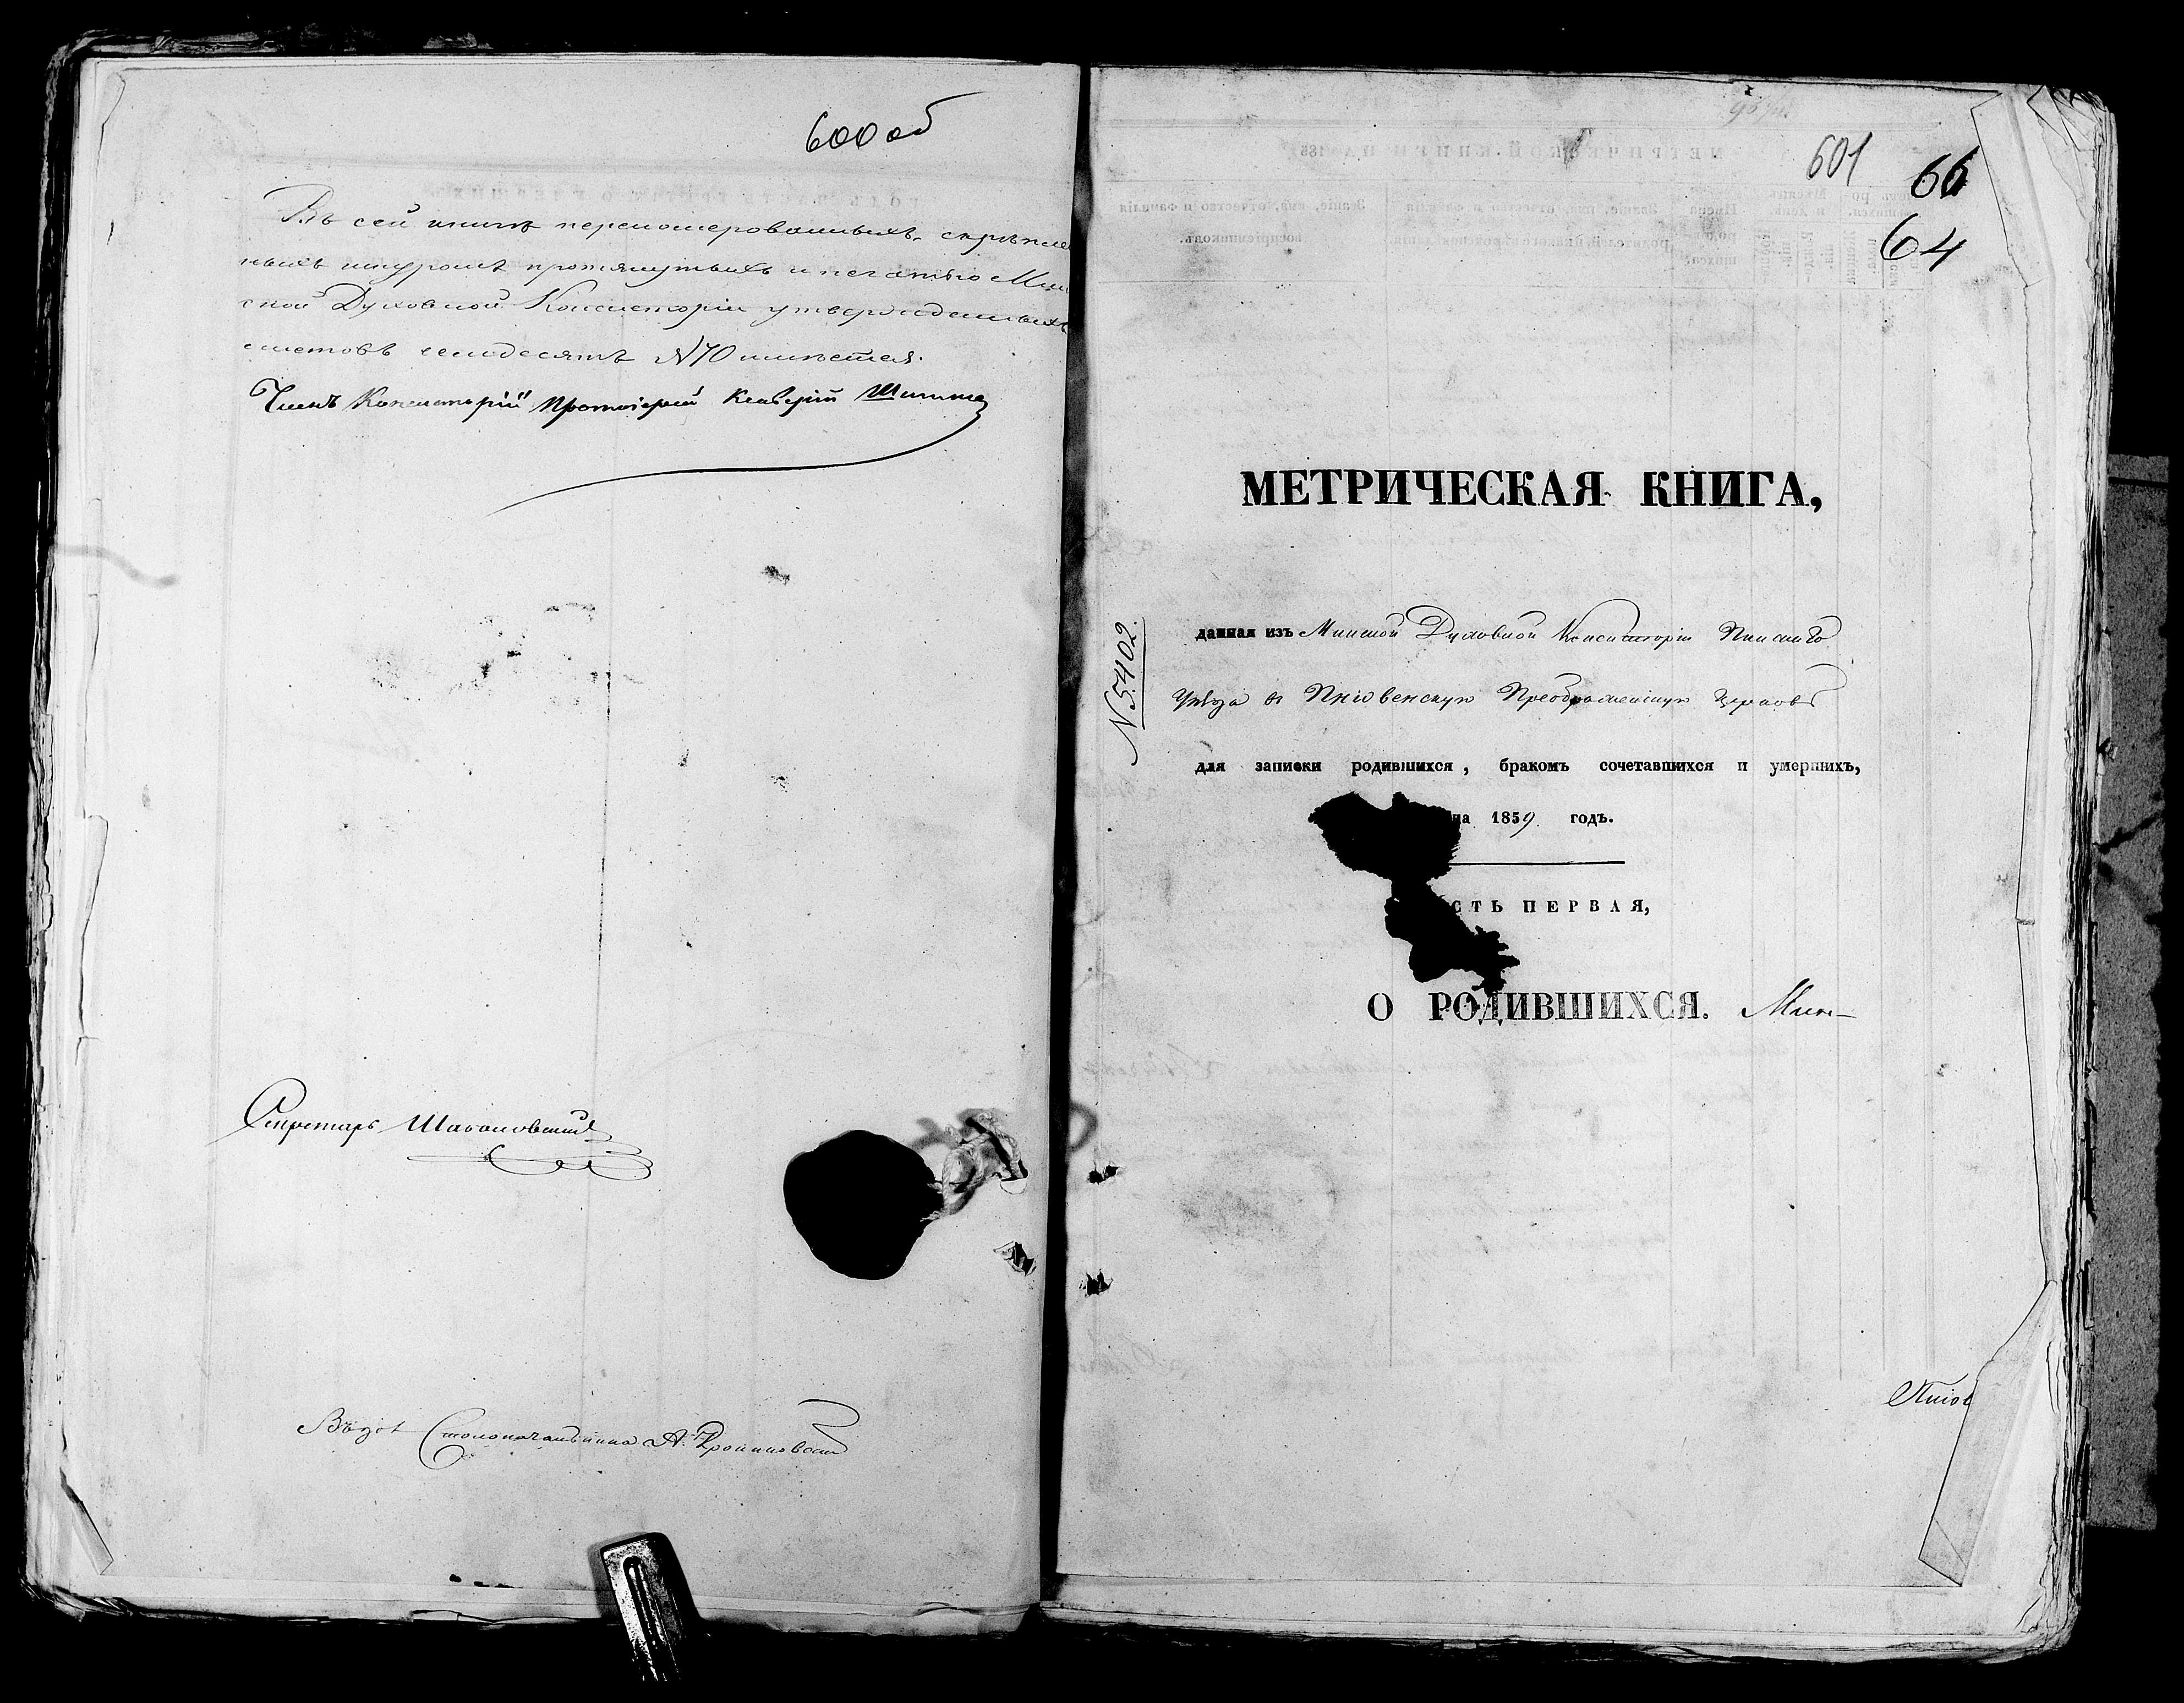 600 об
Въ сей книгѣ переномерованныхъ, скрѣплен
ныхъ шнуромъ протянутыхъ и печатью Мин
ской Духовной Консисторіи утвержденныхъ
листовъ семдесятъ N 70 имѣется.
Членъ Консисторіи Протоіерей
Секретарь
Столоначальника А.
601
66
64
МЕТРИЧЕСКАЯ КНИГА,
N 5402.
данная изъ Минской Духовной Консисторіи Пинскаго
уѣзда въ Пніовенскую Преображенскую Церковь
для записки родившихся, бракомъ сочетавшихся и умершихъ,
на 1859 годъ.
СТЬ ПЕРВАЯ,
О РОДИВШИХСЯ. Мин-
Пніов